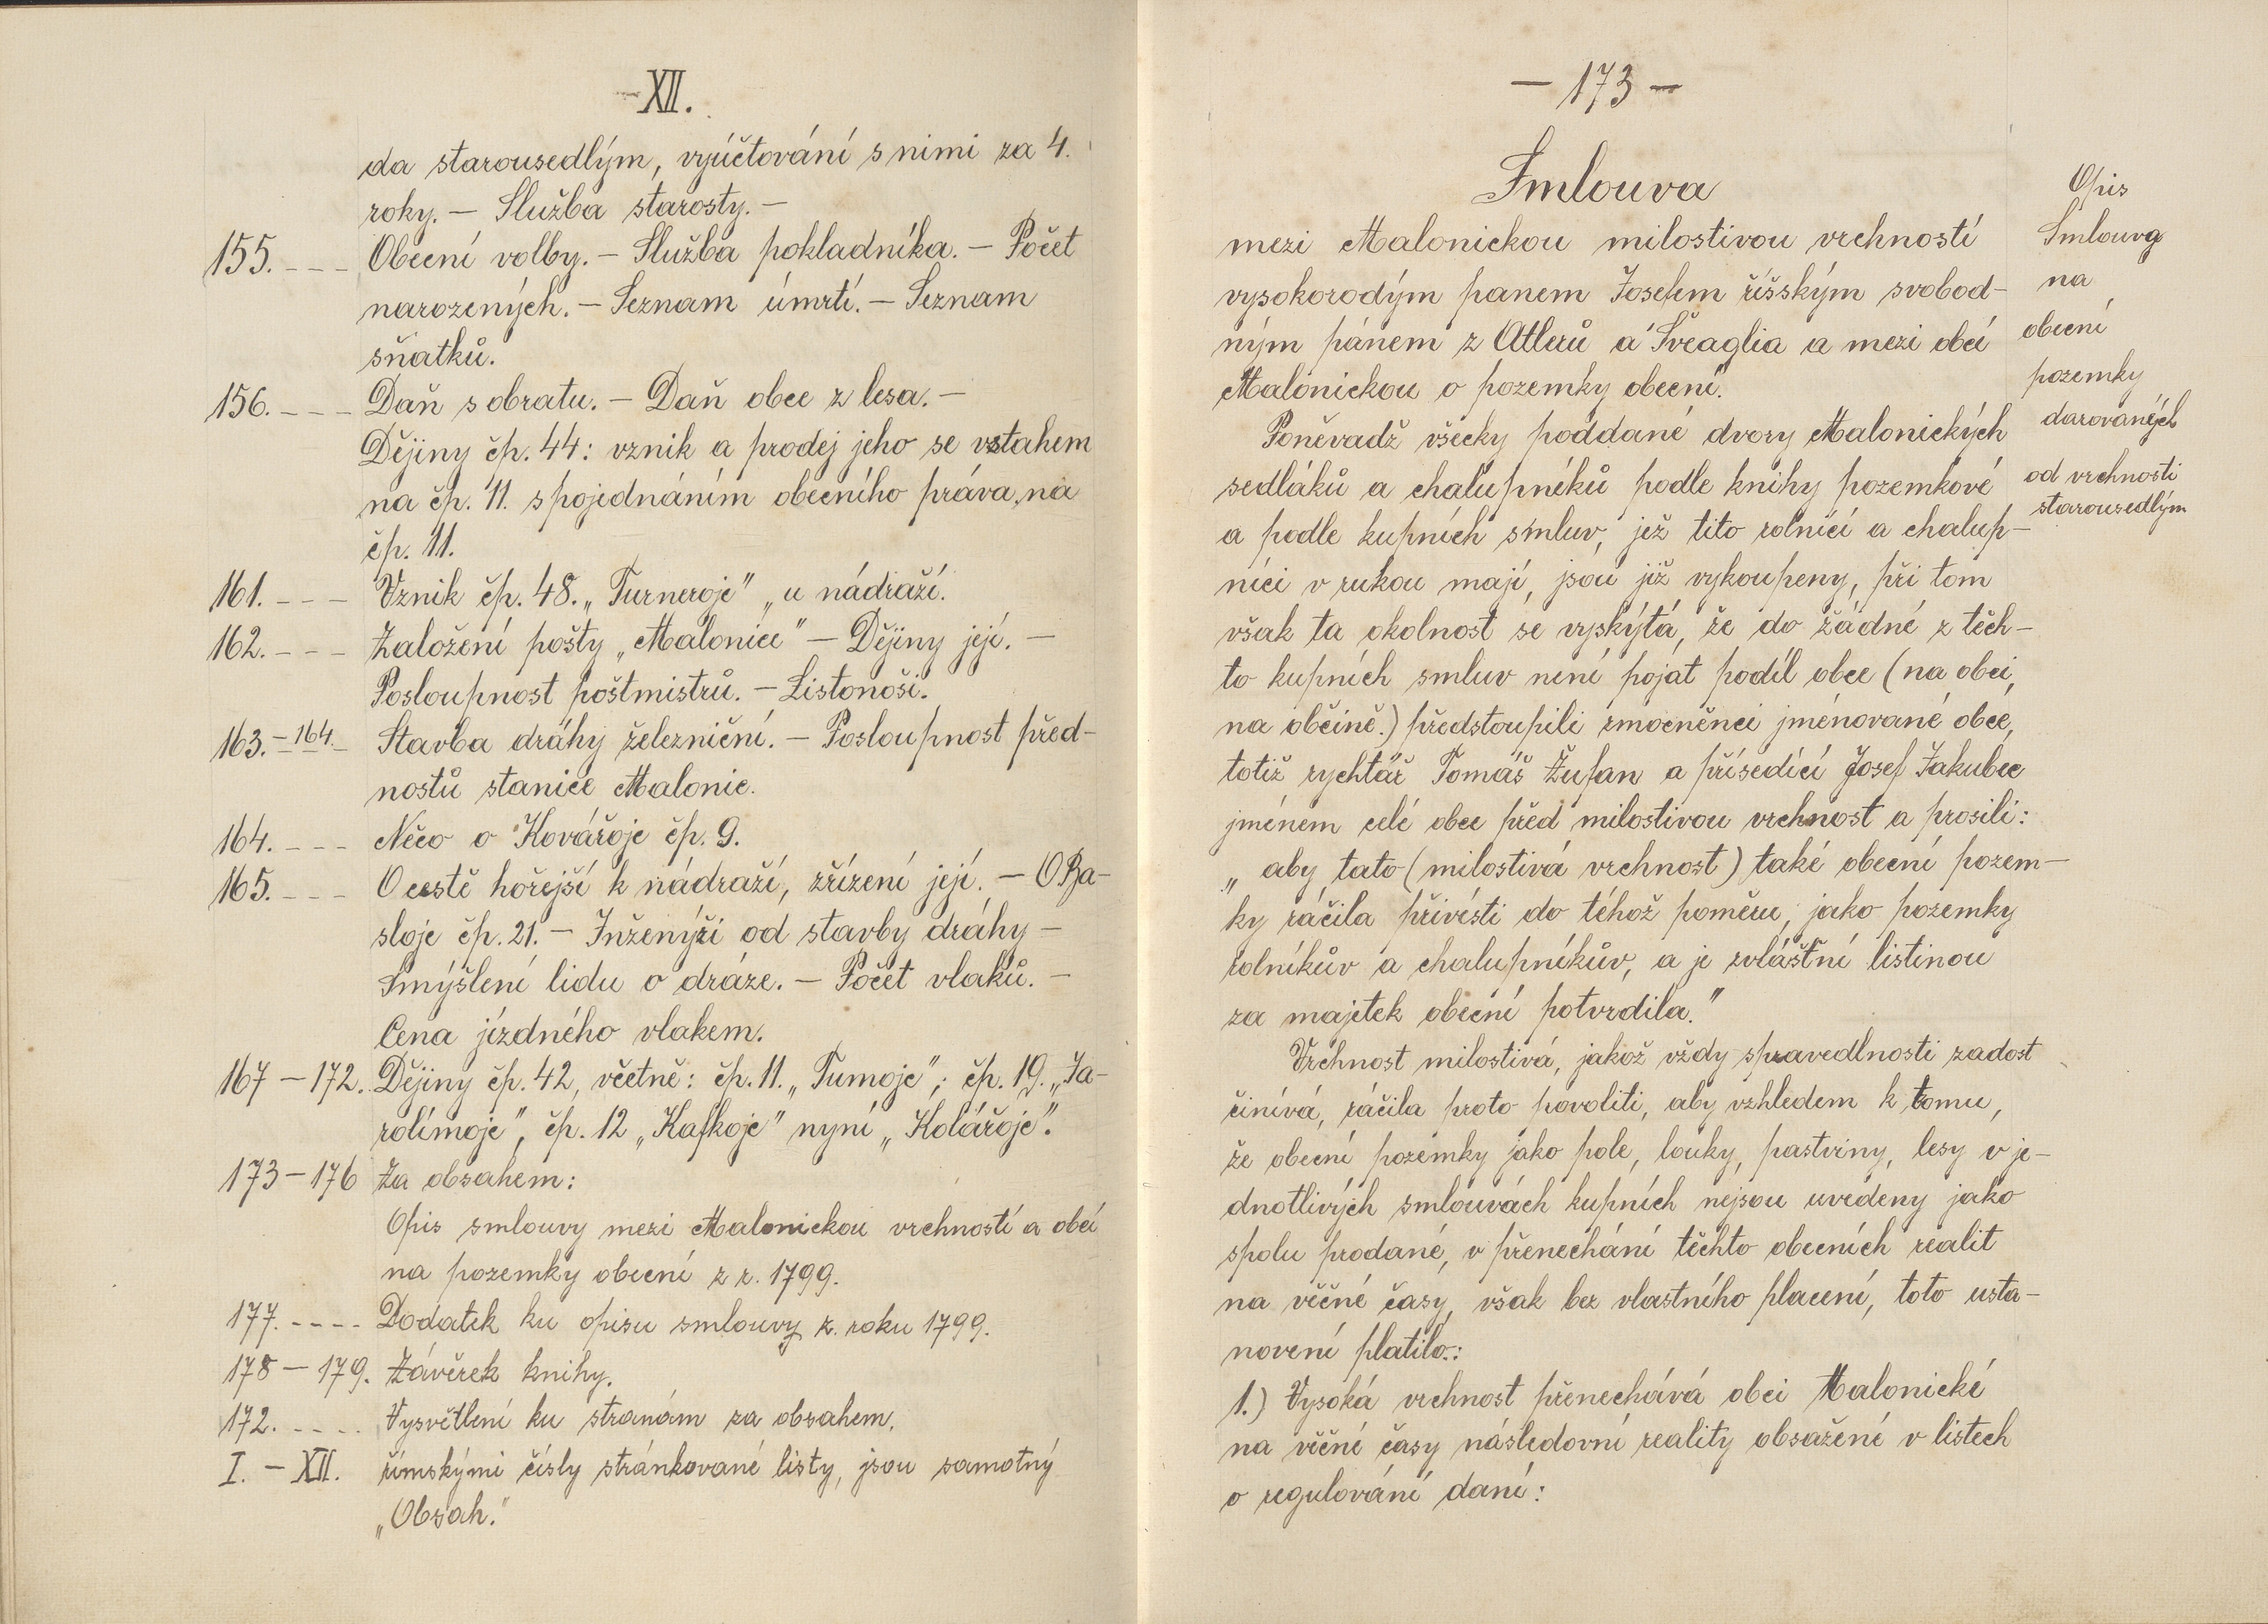 -XII.
da starousedlým, vyúčtování s nimi za 4.
roky. – Služba starosty. –
155. - - - Obecní volby. – Služba pokladníka. – Počet
narozených. – Seznam úmrtí. – Seznam
sňatků.
156. - - - Daň s obratu. – Daň obce z lesa. –
Dějiny čp. 44: vznik a prodej jeho se vztahem
na čp. 11. s pojednáním obecního práva na
čp. 11.
161. - - - Vznik čp. 48. „Turneroje" „u nádraží.
162. - - - Založení pošty „Malonice" – Dějiny její. –
Posloupnost poštmistrů. – Listonoši.
163. – 164. Stavba dráhy železniční. – Posloupnost před-
nostů stanice Malonic.
164. - - - Něco o Kovářoje čp. 9.
165. - - - O cestě hořejší k nádraží, zřízení její. – O Ba-
sloje čp. 21. – Inženýři od stavby dráhy –
Smýšlení lidu o dráze. – Počet vlaků. –
Cena jízdného vlakem.
167 – 172. Dějiny čp. 42, včetně: čp. 11. „Tumoje"; čp. 19. „Ja-
rolímoje", čp. 12 „Kafkoje" nyní „Kolářoje".
173 – 176 Za obsahem:
Opis smlouvy mezi Malonickou vrchností a obcí
na pozemky obecní z r. 1799.
177. - - - - Dodatek ku opisu smlouvy z. roku 1799.
178 – 179. Závěrek knihy.
172. - - - - Vysvětlení ku stranám za obsahem.
I. – XII. římskými čísly stránkované listy, jsou samotný
„Obsah."
– 173 –
Smlouva
mezi Malonickou milostivou vrchností
vysokorodým panem Josefem říšským svobod-
ným pánem z Atlerů a Šveaglia a mezi obcí
Malonickou o pozemky obecní.
Poněvadž všecky poddané dvory Malonických
sedláků a chalupníků podle knihy pozemkové
a podle kupních smluv, jež tito rolníci a chalup-
níci v rukou mají, jsou již vykoupeny, při tom
však ta okolnost se vyskýtá, že do žádné z těch-
to kupních smluv není pojat podíl obce (na obci,
na občině.) předstoupili zmocněnci jmenované obce,
totiž rychtář Tomáš Župan a přísedící Josef Jakubec
jménem celé obce před milostivou vrchnost a prosili:
„ aby tato (milostivá vrchnost) také obecní pozem-
ky ráčila přivésti do téhož poměru, jako pozemky
rolníkův a chalupníkův, a je zvláštní listinou
za majetek obecní potvrdila."
Vrchnost milostivá, jakož vždy spravedlnosti zadost
činívá, ráčila proto povoliti, aby vzhledem k tomu,
že obecní pozemky jako pole, louky, pastviny, lesy v je-
dnotlivých smlouvách kupních nejsou uvedeny jako
spolu prodané, v přenechání těchto obecních realit
na věčné časy, však bez vlastního placení, toto usta-
novení platilo.:
1.) Vysoká vrchnost přenechává obci Malonické
na věčné časy následovní reality obsažené v listech
o regulování daní:
Opis
Smlouva
na
obecní
pozemky
darovaných
od vrchnosti
starousedlým